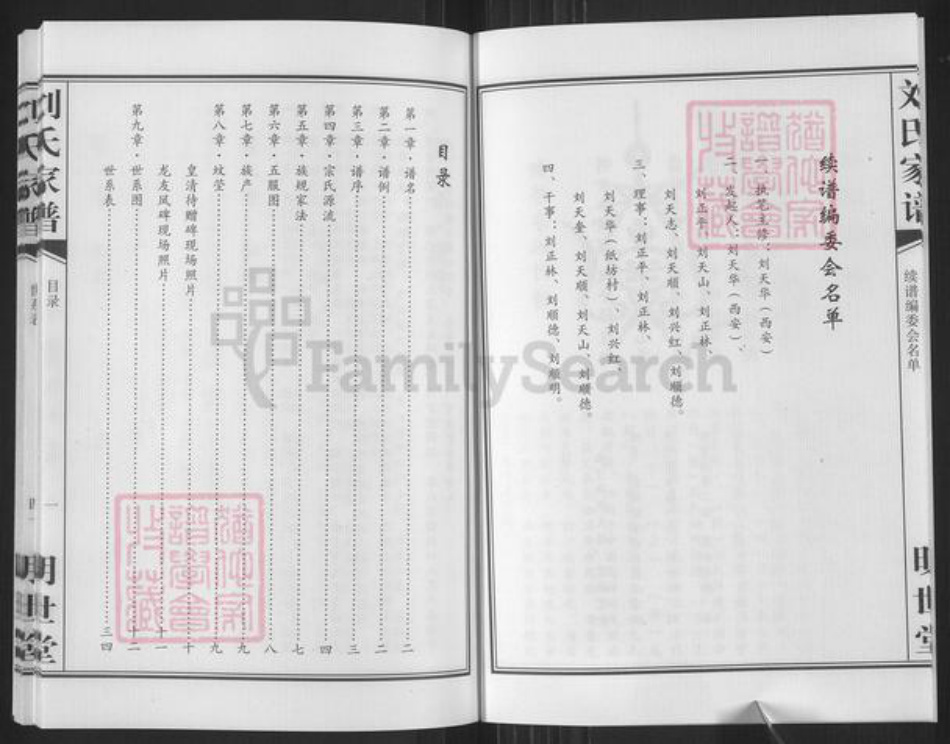 刘氏家谱
续谱编委会名单
明世堂
续谱编委会名单
一、执笔主修：刘天华（西安）
二、发起人：刘天华（西安）、
刘正平、刘天山、刘正林、
刘天志、刘天顺、刘兴红、刘顺德。
三、理事：刘正平、刘正林、
刘天华（纸坊村）、刘兴红、
刘天奎、刘天顺、刘天山、刘顺德。
四、干事：刘正林、刘顺德、刘顺明。
目录
第一章·谱名 二
第二章·谱例 二
第三章·谱序 三
第四章·宗氏源流 四
第五章·族规家法 七
第六章·五服图 八
第七章·族产 九
第八章·坟茔 九
皇清待赠碑现场照片 十
龙友凤碑现场照片 十一
第九章·世系图 十二
世系表 三四
刘氏家谱
目录
一
明世堂
FamilySearch